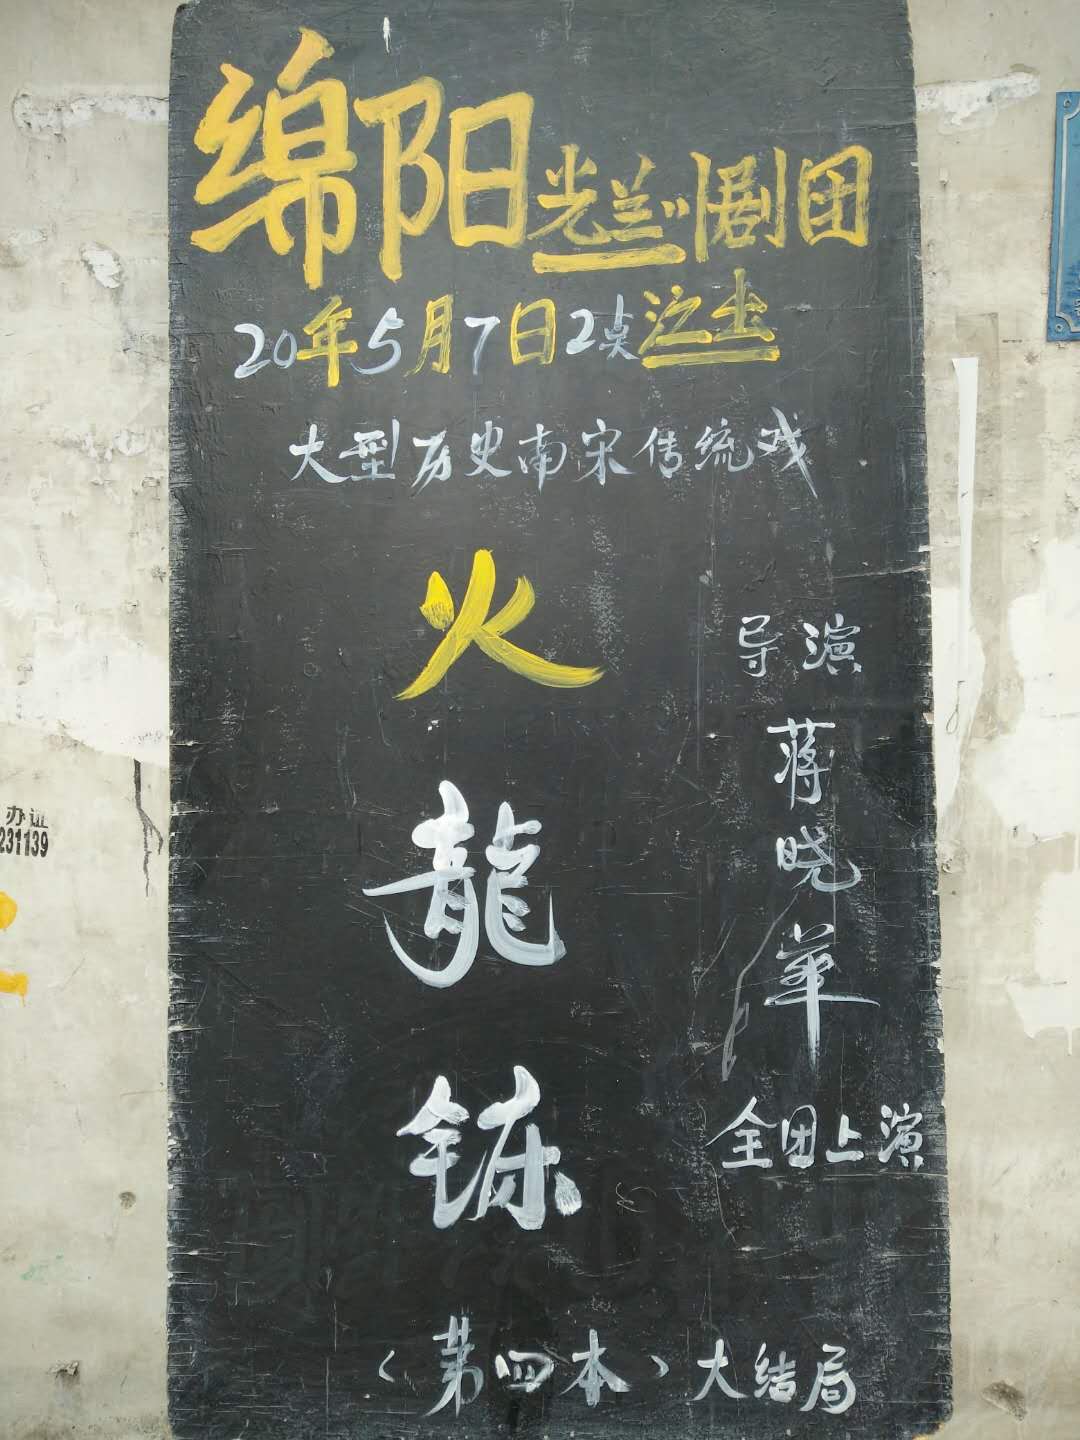 绵阳光兰川剧团
20年5月7日2点演出
大型历史南宋传统戏
火龍鉢
导演
蒋晓华
全团上演
(第四本)大结局
办证
231139